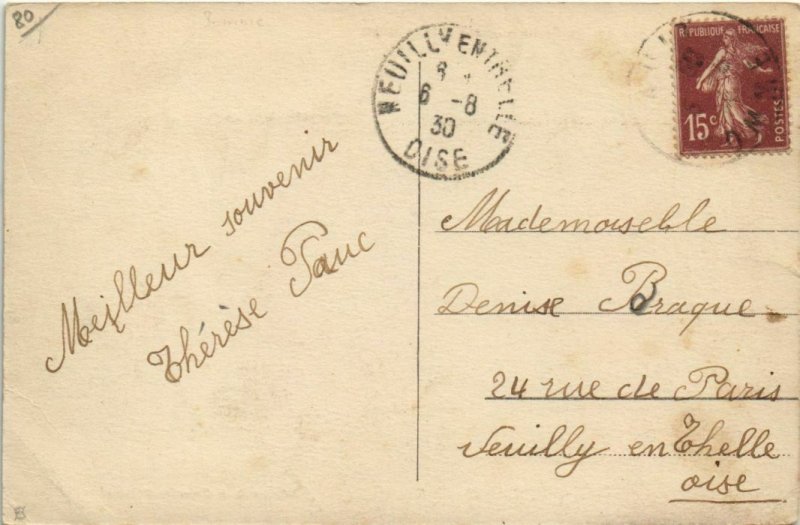 80
NEUILLY EN THELLE
6 -8
30
OISE
REPUBLIQUE FRANCAISE
15c
POSTES
Meilleur souvenir
Thérèse
Mademoiselle
Denise Braque
24 rue de Paris
Neuilly en Thelle
oise